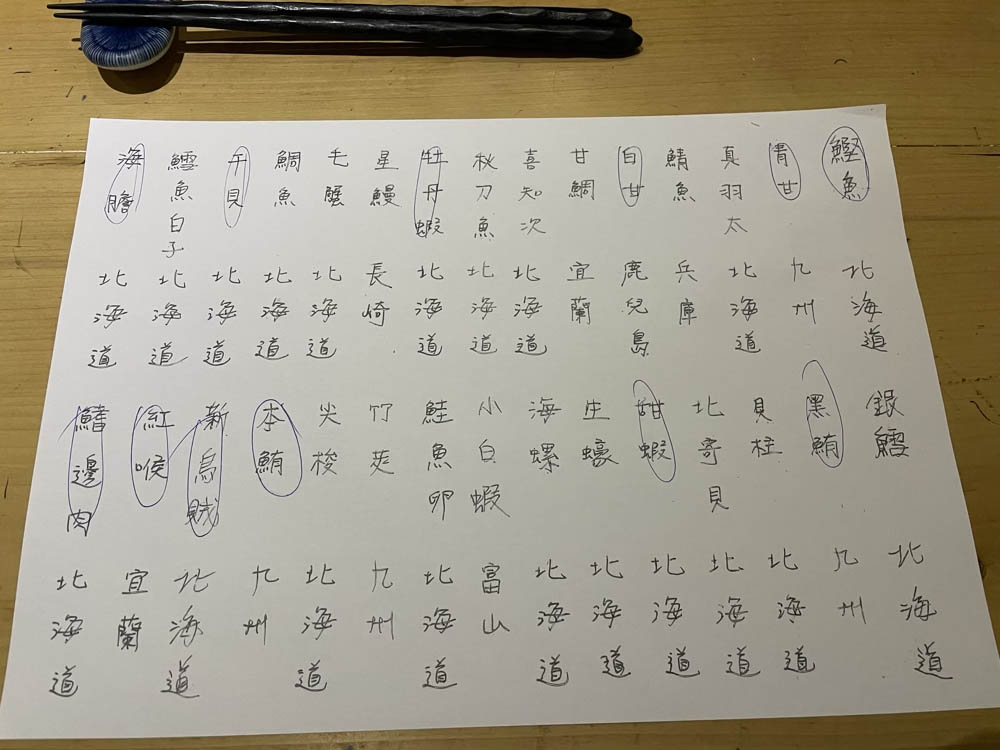 鰹魚 北海道
青甘 九州
真羽太 北海道
鯖魚 兵庫
白甘 鹿兒島
甘鯛 宜蘭
喜知次 北海道
秋刀魚 北海道
牡丹蝦 北海道
星鰻 長崎
毛蟹 北海道
鯛魚 北海道
干貝 北海道
鱈魚白子 北海道
海膽 北海道
銀鱈 北海道
黑鮪 九州
貝柱 北海道
北寄貝 北海道
甜蝦 北海道
生蠔 北海道
海螺 北海道
小白蝦 富山
鮭魚卵 北海道
竹莢 九州
尖梭 北海道
本鮪 九州
新烏賊 北海道
紅喉 宜蘭
鰭邊肉 北海道